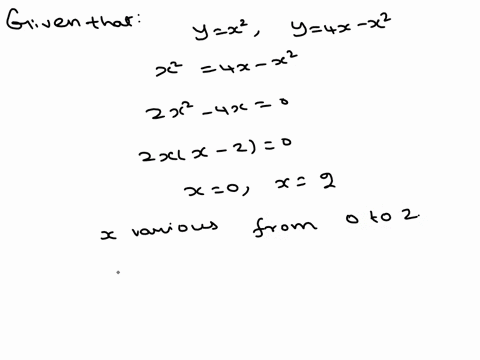 Given that: y = x², y = 4x - x²
x² = 4x - x²
2x² - 4x = 0
2x(x - 2) = 0
x = 0, x = 2
x various from 0 to 2